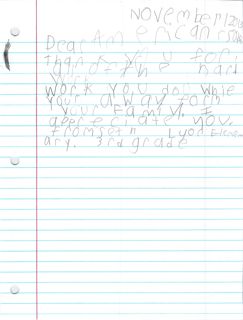 NOVEMBER 1 20
Dear American
Thank you for
all of the hard
work you do while
your away form
your Family. I
appreciate you.
from seth Lyon Elemen
ary. 3rd grade